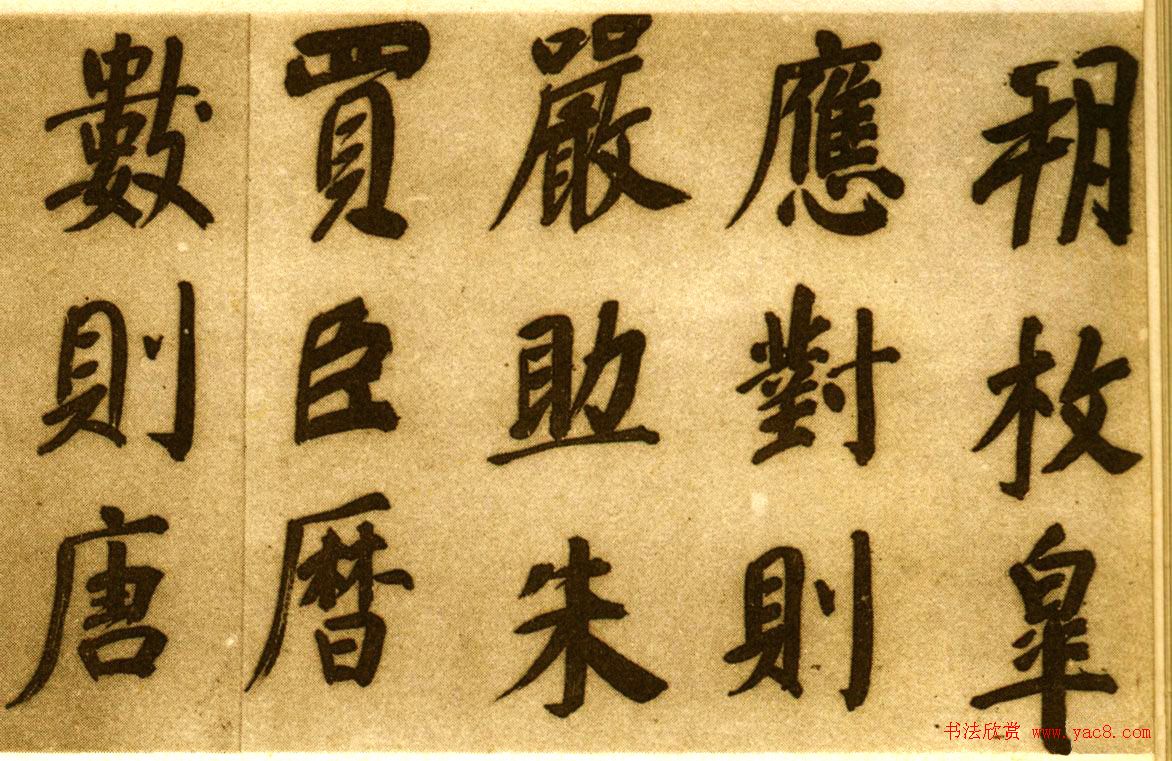 朔枚皐
應對則
嚴助朱
買臣曆
數則唐
书法欣赏 www.yac8.com